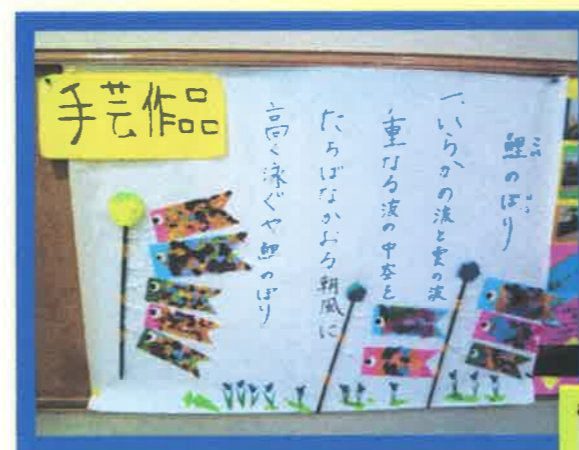 手芸作品
鯉のぼり
一、いらかの波と雲の波
重なる波の中空を
たちばなかおる朝風に
高く泳ぐや鯉のぼり